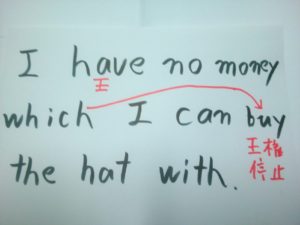 I have no money
王
which I can buy
王権
停止
the hat with.